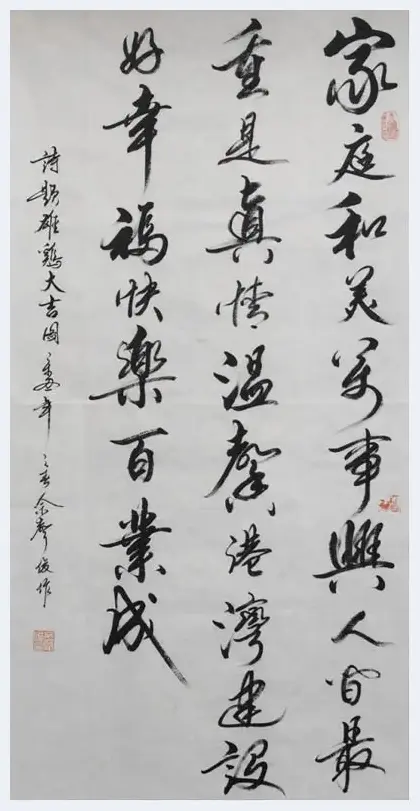 家庭和美萬事興人間最
重是真情温馨港灣建設
好幸福快樂百業成
詩題雄鷄大吉圖年之春余俊作